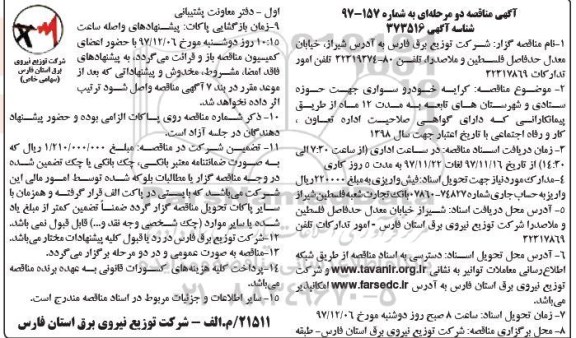 آگهی مناقصه دو مرحله‌ای به شماره ۱۵۷-۹۷
شناسه آگهی ۳۷۳۵۱۶
۱-نام مناقصه گزار: شرکت توزیع برق فارس به آدرس شیراز، خیابان
معدل حدفاصل فلسطین و ملاصدرا، تلفن ۸۰-۳۲۳۱۹۳۷۴ تلفن امور
تدارکات ۳۲۳۱۷۸۶۹
۲- موضوع مناقصه: کرایه خودرو سواری جهت حوزه
ستادی و شهرستان های تابعه به مدت ۱۲ ماه از طریق
پیمانکارانی که دارای گواهی صلاحیت اداره تعاون ،
کار و رفاه اجتماعی با تاریخ اعتبار جهت سال ۱۳۹۸
۳- زمان دریافت اسناد مناقصه: در ساعت اداری (از ساعت ۷:۳۰ الی
۱۴:۳۰) از تاریخ ۹۷/۱۱/۱۶ لغایت ۹۷/۱۱/۲۲ به مدت ۵ روز کاری
۴-مدارک مورد نیاز جهت تحویل اسناد: فیش واریزی به مبلغ ۲۲۰۰۰۰ ریال
واریز به حساب جاری ۰۷۸۶۰۰۷۴۸۲۷ بانک تجارت شعبه فلسطین شیراز
۵- آدرس محل دریافت اسناد: شیراز خیابان معدل حدفاصل فلسطین
و ملاصدرا شرکت توزیع نیروی برق استان فارس - امور تدارکات تلفن
۳۲۳۱۷۸۶۹
۶- آدرس محل تحویل اسناد: دسترسی به اسناد مناقصه از طریق شبکه
اطلاع‌رسانی معاملات توانیر به نشانی www.tavanir.org.ir و شرکت
توزیع نیروی برق فارس به آدرس www.farsedc.ir امکانپذیر
می‌باشد.
۷- زمان تحویل اسناد: ساعت ۸ صبح روز دوشنبه مورخ ۹۷/۱۲/۰۶
۸- محل برگزاری مناقصه: شرکت توزیع نیروی برق استان فارس- طبقه
اول - دفتر معاونت پشتیبانی
۹-زمان بازگشایی پاکات: پیشنهادهای واصله ساعت
۱۰:۱۵ روز دوشنبه مورخ ۹۷/۱۲/۰۶ با حضور اعضای
کمیسیون مناقصه باز و قرائت می‌گردد، به پیشنهادهای
فاقد امضا، مشروط، مخدوش و پیشنهاداتی که بعد از
موعد مقرر در بند ۷ آگهی مناقصه واصل شود ترتیب
اثر داده نخواهد شد.
۱۰- ذکر شماره مناقصه روی پاکات الزامی بوده و حضور پیشنهاد
دهندگان در جلسه آزاد است.
۱۱- تضمین شرکت در مناقصه: مبلغ ۱/۲۱۰/۰۰۰/۰۰۰ ریال که
به صورت ضمانتنامه معتبر بانکی، چک بانکی یا چک تضمین شده
در وجه مناقصه گزار یا مطالبات بلوکه شده توسط امور مالی این
شرکت می‌باشد که بایستی در پاکت الف قرار گرفته و همزمان با
سایر پاکات تحویل مناقصه گزار گردد ضمناً تضمین کمتر از مبلغ یاد
شده یا سایر موارد (چک شخصی وجه نقد و...) قابل قبول نمی باشد.
۱۲-شرکت توزیع برق فارس در رد یا قبول کلیه پیشنهادات مختار می‌باشد.
۱۳-مناقصه به صورت عمومی و در دو مرحله برگزار می‌گردد.
۱۴-پرداخت کلیه هزینه‌های کسورات قانونی به عهده برنده مناقصه
می‌باشد.
۱۵- سایر اطلاعات و جزئیات مربوط در اسناد مناقصه مندرج است.
۲۱۵۱۱/م.الف - شرکت توزیع نیروی برق استان فارس
شرکت توزیع نیروی
برق استان فارس
(سهامی خاص)